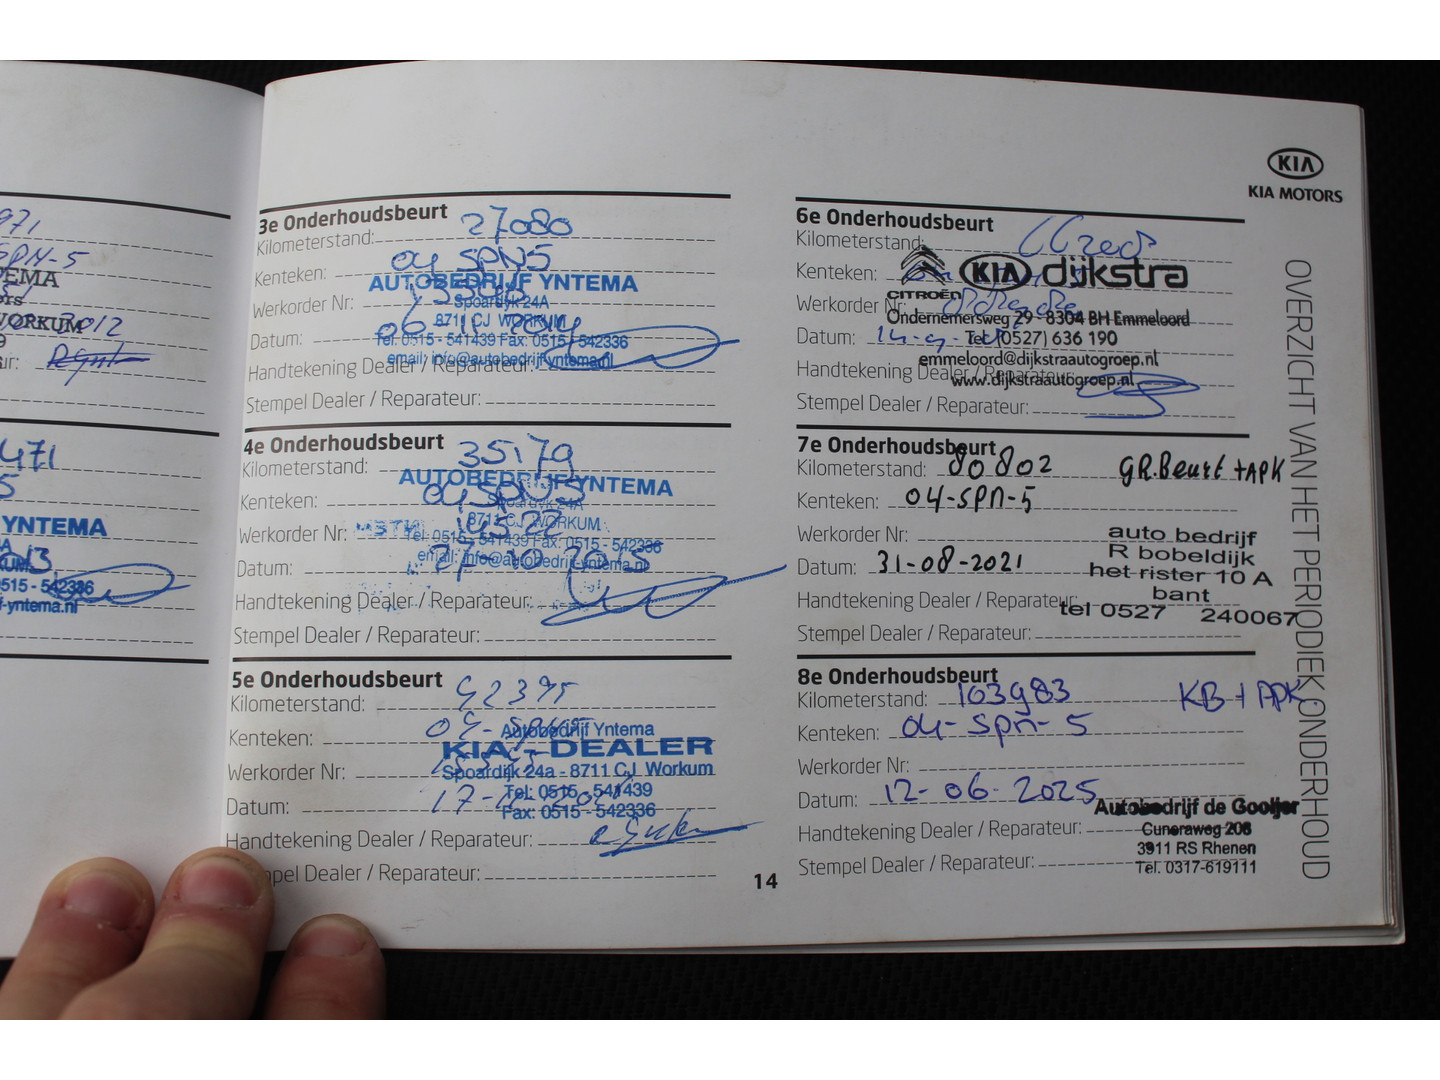 971
SPN-5
TEMA
ors
WORKUM
2012
9
471
5
YNTEMA
2013
0515 - 542336
f-yntema.nl
3e Onderhoudsbeurt
Kilometerstand: 27080
Kenteken: 04 SPN5
AUTOBEDRIJF YNTEMA
Spoardyk 24A
Werkorder Nr:
8711 CJ WORKUM
Datum: 06-11-2014
Tel: 0515 - 541439 Fax: 0515 - 542336
email: info@autobedrijf-yntema.nl
Handtekening Dealer / Reparateur:
Stempel Dealer / Reparateur:
4e Onderhoudsbeurt
Kilometerstand: 35179
AUTOBEDRIJF YNTEMA
Kenteken: 04 SPN-5
Spoardyk 24A
8711 CJ WORKUM
Werkorder Nr: 14522
Tel: 0515 - 541439 Fax: 0515 - 542336
email: info@autobedrijf-yntema.nl
Datum: 27-10-2015
Handtekening Dealer / Reparateur:
Stempel Dealer / Reparateur:
5e Onderhoudsbeurt
Kilometerstand: 42395
Kenteken: 04-SPN-5
Autobedrijf Yntema
KIA - DEALER
Werkorder Nr:
Spoardijk 24a - 8711 CJ Workum
Tel: 0515 - 541439
Datum:
Fax: 0515 - 542336
Handtekening Dealer / Reparateur:
pel Dealer / Reparateur:
14
KIA
KIA MOTORS
6e Onderhoudsbeurt
Kilometerstand:
Kenteken:
CITROËN KIA dijkstra
Werkorder Nr:
Ondernemersweg 29 - 8304 BH Emmeloord
Datum:
Tel. (0527) 636 190
emmeloord@dijkstraautogroep.nl
Handtekening Dealer / Reparateur:
www.dijkstraautogroep.nl
Stempel Dealer / Reparateur:
7e Onderhoudsbeurt
Kilometerstand: 80802 GR.Beurt + APK
Kenteken: 04-SPN-5
Werkorder Nr:
auto bedrijf
R bobeldijk
Datum: 31-08-2021
het rister 10 A
bant
Handtekening Dealer / Reparateur:
tel 0527 240067
Stempel Dealer / Reparateur:
8e Onderhoudsbeurt
Kilometerstand: 103983 KB + APK
Kenteken: 04-SPN-5
Werkorder Nr:
Datum: 12-06-2025
Autobedrijf de Gooijer
Handtekening Dealer / Reparateur:
Cuneraweg 208
3911 RS Rhenen
Stempel Dealer / Reparateur:
Tel. 0317-619111
OVERZICHT VAN HET PERIODIEK ONDERHOUD